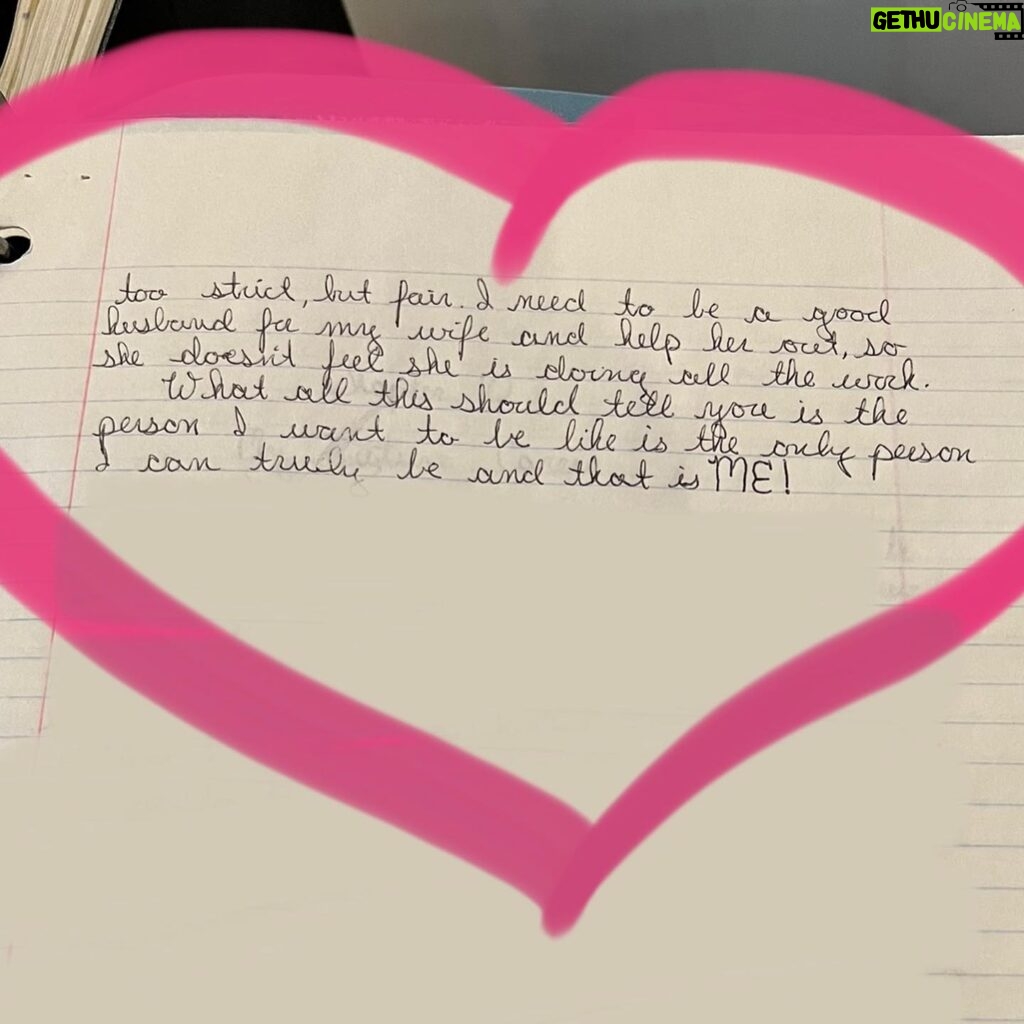 GETHUCINEMA
too strict, but fair. I need to be a good
husband for my wife and help her out, so
she doesn't feel she is doing all the work.
What all this should tell you is the
person I want to be like is the only person
I can truly be and that is ME!